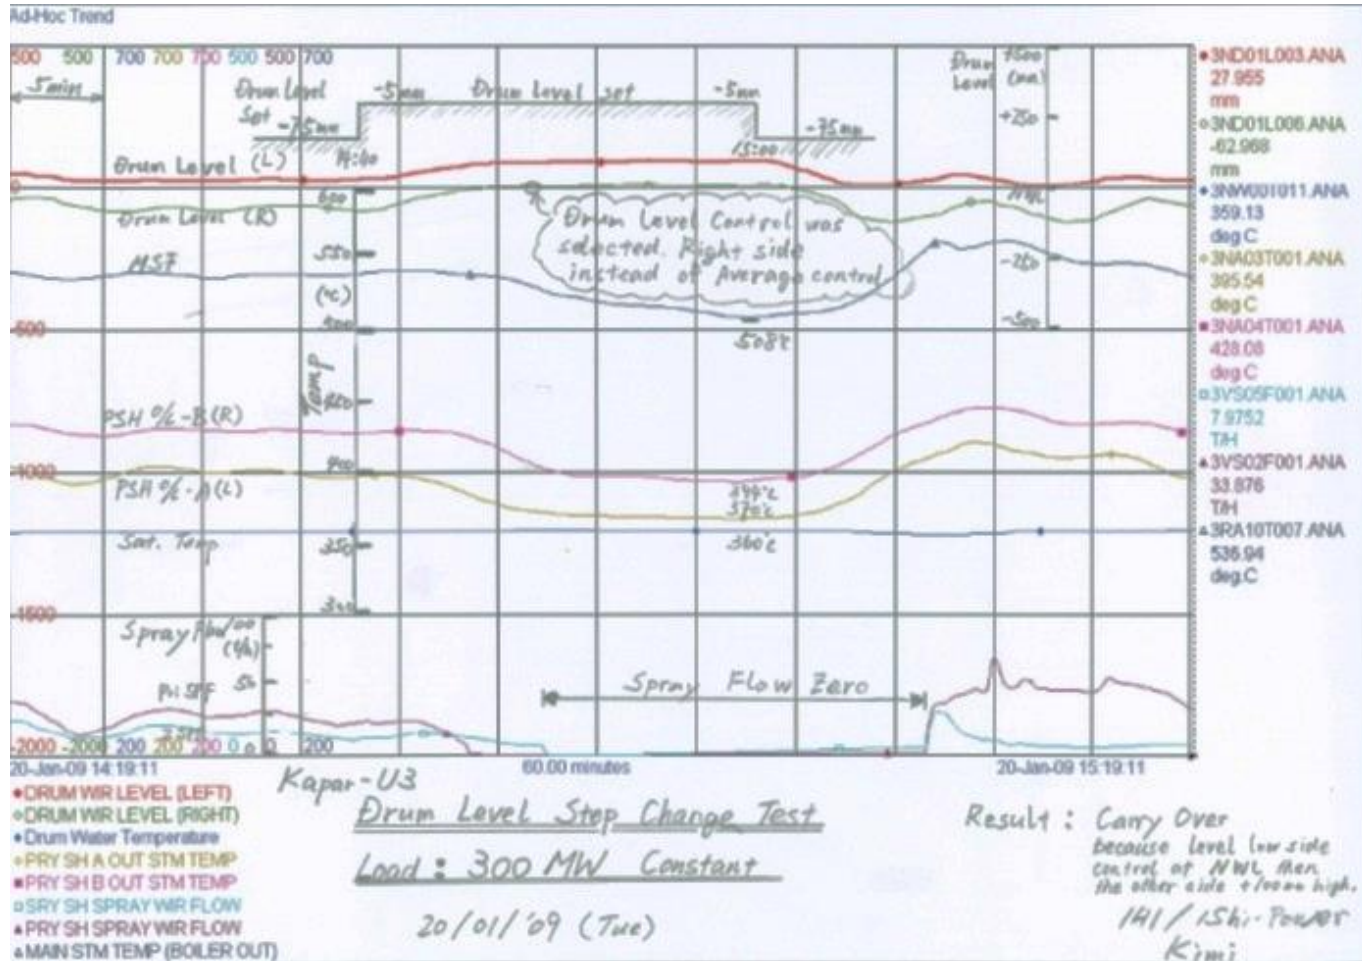 Ad-Hoc Trend
500 500 700 700 700 500 500 700
5min
Drum Level
Set
-75mm
-5mm
Drum Level set
-5mm
-75mm
14:40
15:00
Drum
Level
(mm)
+500
+250
NWL
-250
-500
Drum Level (L)
Drum Level (R)
0
Drum Level Control was
selected. Right side
instead of Average control
MSF
600
550
(℃)
500
Temp
450
400
350
300
-500
508℃
PSH O/L-B(R)
-1000
PSH O/L-A(L)
370℃
Sat. Temp
360℃
-1500
Spray Flow
(t/h)
50
0
Spray Flow Zero
-2000 -2000 200 200 200 0 0 200
20-Jan-09 14:19:11
60.00 minutes
20-Jan-09 15:19:11
3ND01L003.ANA
27.955
mm
3ND01L006.ANA
-62.968
mm
3NW00T011.ANA
359.13
deg C
3NA03T001.ANA
395.54
deg C
3NA04T001.ANA
428.08
deg C
3VS05F001.ANA
7.9752
T/H
3VS02F001.ANA
33.876
T/H
3RA10T007.ANA
536.94
deg.C
DRUM WIR LEVEL (LEFT)
DRUM WIR LEVEL (RIGHT)
Drum Water Temperature
PRY SH A OUT STM TEMP
PRY SH B OUT STM TEMP
SRY SH SPRAY WIR FLOW
PRY SH SPRAY WIR FLOW
MAIN STM TEMP (BOILER OUT)
Kapar-U3
Drum Level Step Change Test
Load : 300 MW Constant
20/01/'09 (Tue)
Result : Carry Over
because level low side
control at NWL then
the other side +100mm high.
IHI / IShi-Power
Kimi